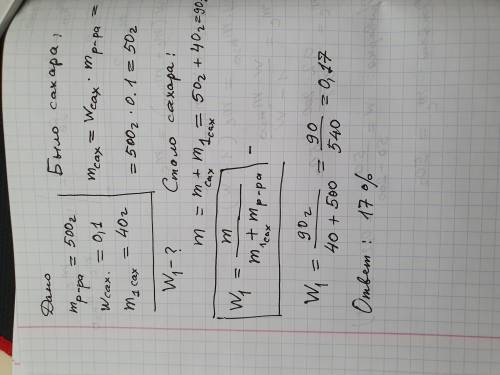 Дано
m р-ра = 500г
Wсах. = 0,1
m1 сах = 40г
W1 - ?
Было сахара:
mсах = Wсах · mр-ра =
= 500г · 0.1 = 50г
Стало сахара:
m = mсах + m1сах = 50г + 40г = 90г
W1 = m / m1сах + mр-ра -
W1 = 90г / 40 + 500 = 90 / 540 = 0,17
Ответ: 17 %